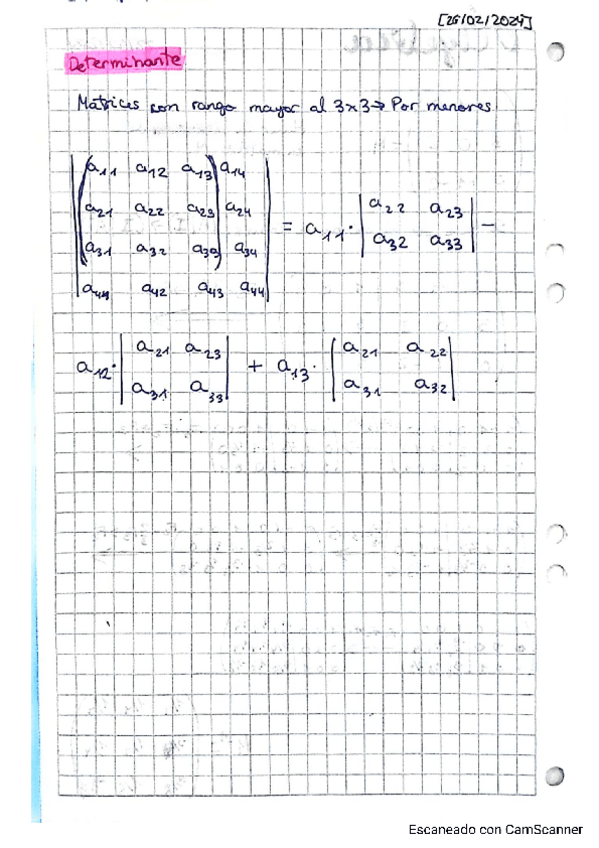 [26/02/2024]
Determinante
Matrices con rango mayor al 3x3→ Por menores
|(a11 a12 a13) a14|
|(a21 a22 a23) a24| = a11· |a22 a23| −
|(a31 a32 a33) a34| |a32 a33|
|a44 a42 a43 a44|
a12· |a21 a23| + a13· |a21 a22|
|a31 a33| |a31 a32|
Escaneado con CamScanner